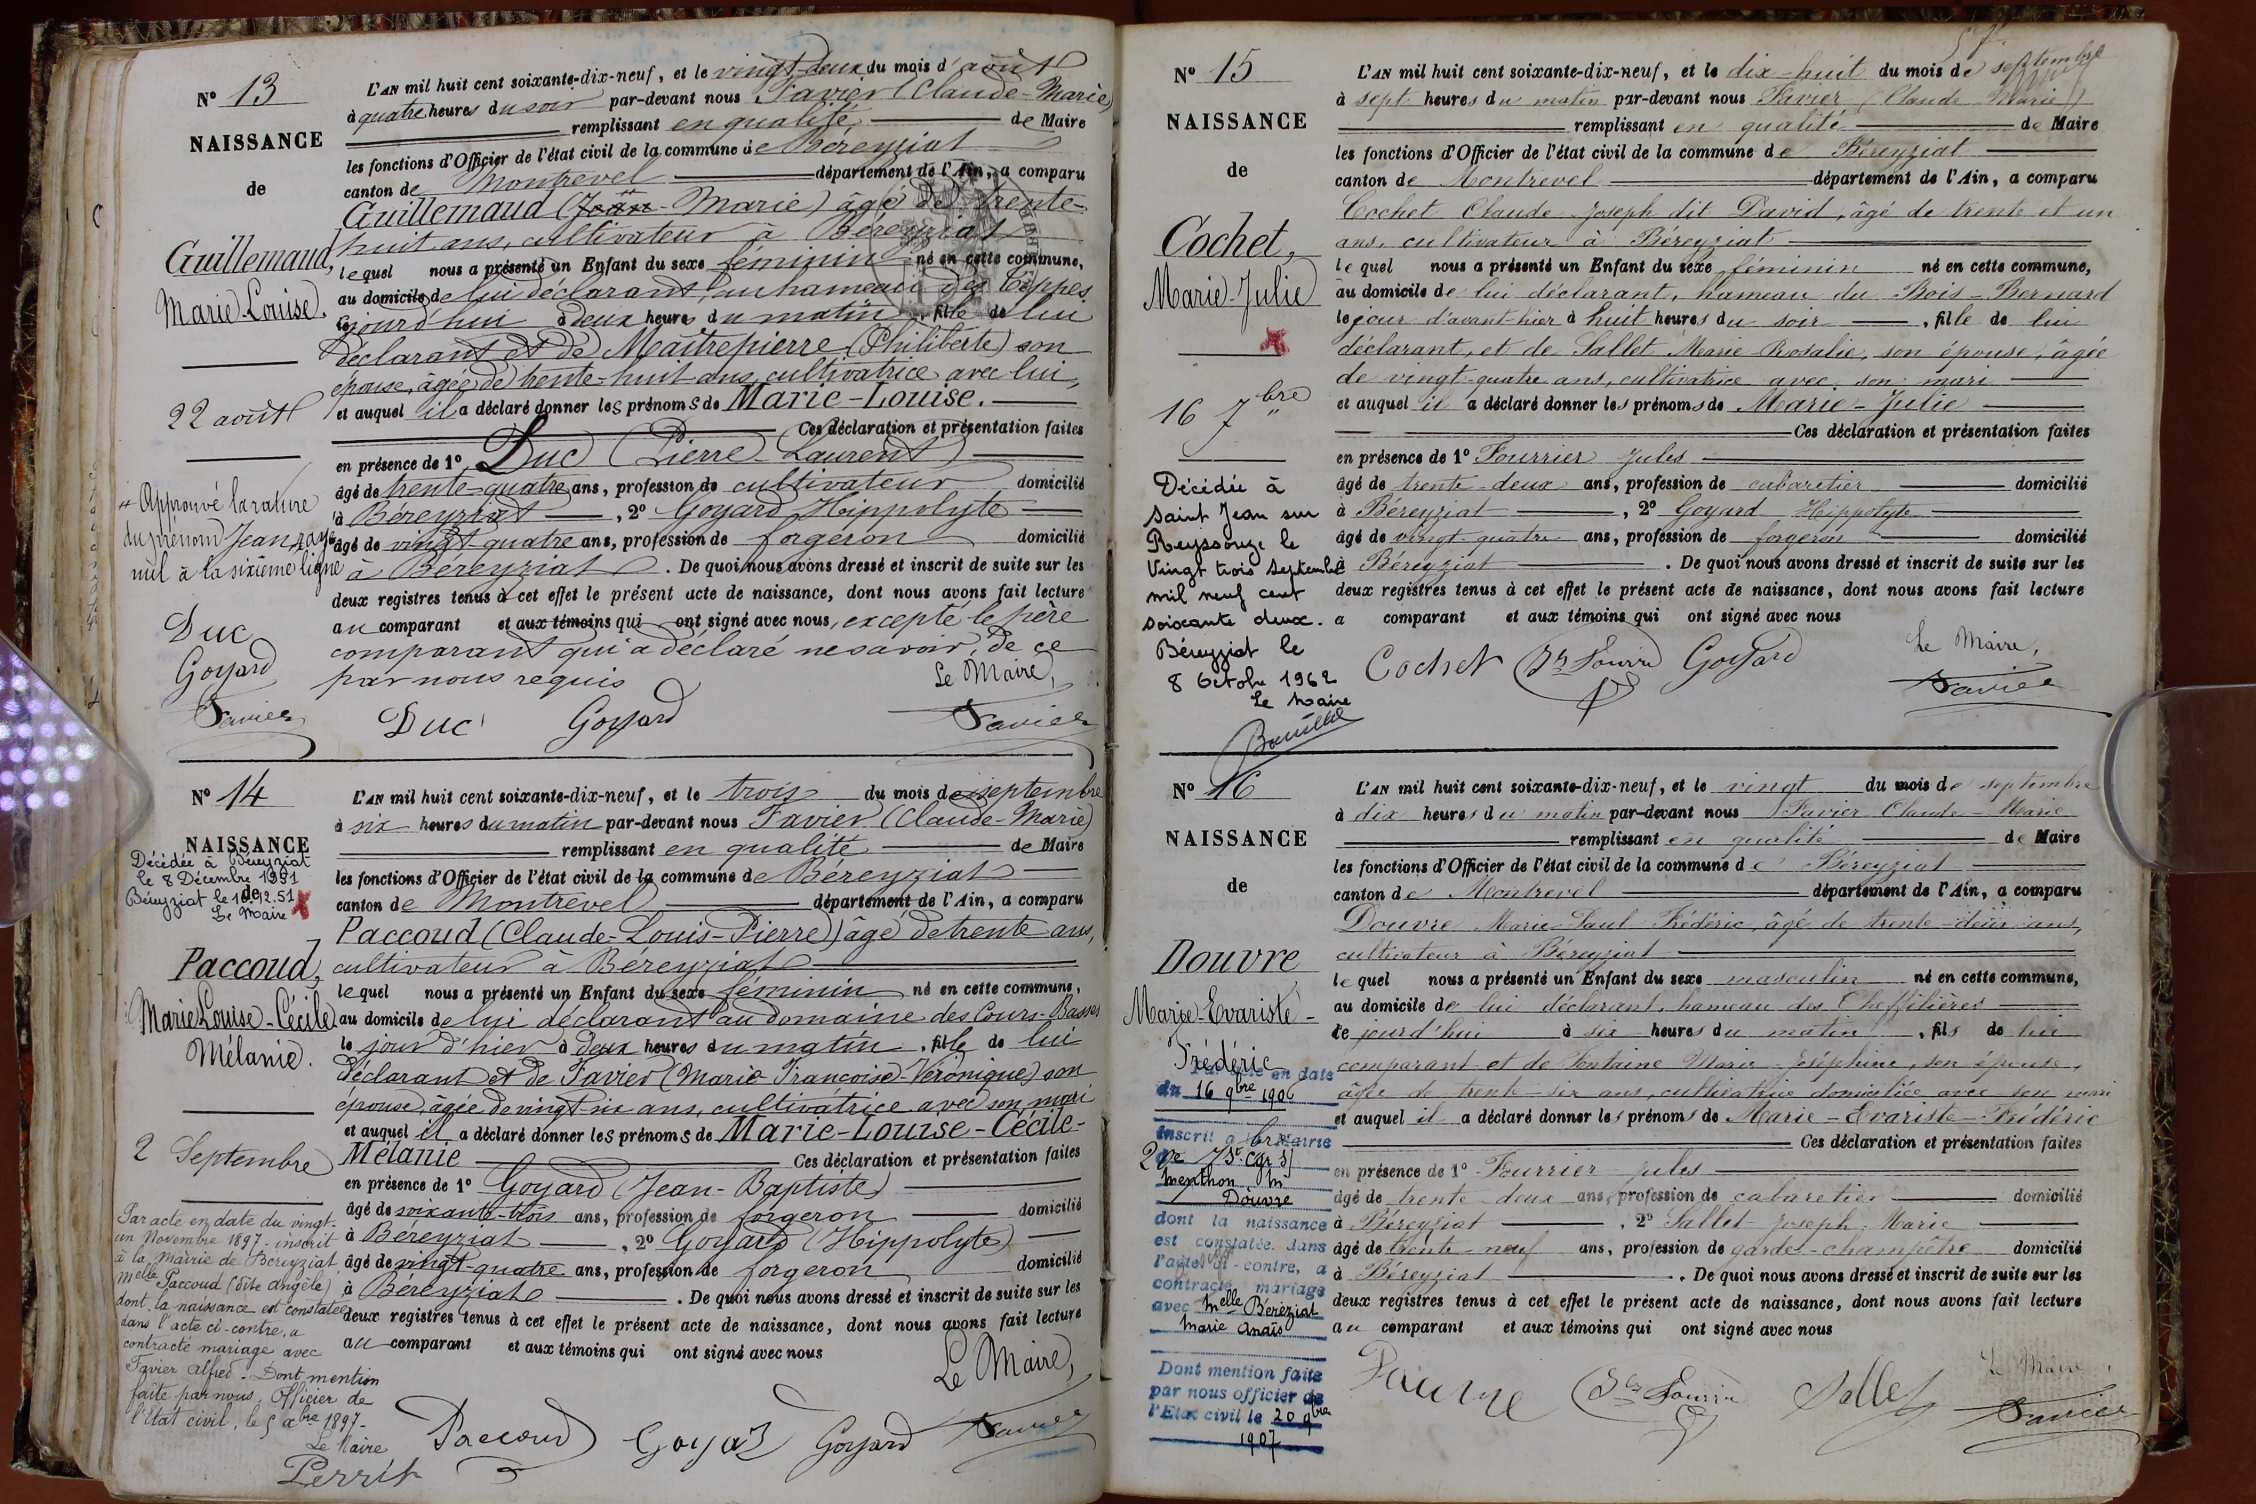 Nº 13
NAISSANCE
de
Guillemaud,
Marie-Louise.
22 août
Approuvé la rature
du prénom Jean, rayé
nul à la sixième ligne
Duc
Goyard
Favier
L'AN mil huit cent soixante-dix-neuf, et le vingt-deux du mois d'août
à quatre heures du soir par-devant nous Favier (Claude-Marie)
remplissant en qualité de Maire
les fonctions d'Officier de l'état civil de la commune de Béreyziat
canton de Montrevel département de l'Ain, a comparu
Guillemaud (Jean-Marie) âgé de trente-
huit ans, cultivateur à Béreyziat
lequel nous a présenté un Enfant du sexe féminin né en cette commune,
au domicile de lui déclarant, au hameau des Teppes,
cejourd'hui à deux heures du matin, fille de lui
déclarant et de Maitrepierre (Philiberte) son
épouse, âgée de trente-huit ans, cultivatrice avec lui,
et auquel il a déclaré donner les prénoms de Marie-Louise.
Ces déclaration et présentation faites
en présence de 1º Duc (Pierre-Laurent)
âgé de trente-quatre ans, profession de cultivateur domicilié
à Béreyziat, 2º Goyard Hippolyte
âgé de vingt-quatre ans, profession de forgeron domicilié
à Béreyziat. De quoi nous avons dressé et inscrit de suite sur les
deux registres tenus à cet effet le présent acte de naissance, dont nous avons fait lecture
au comparant et aux témoins qui ont signé avec nous, excepté le père
comparant qui a déclaré ne savoir, de ce
par nous requis
Le Maire,
Duc Goyard Favier
Nº 14
NAISSANCE
Décédée à Béreyziat
le 8 Décembre 1951
de
Béreyziat le 10.12.51
Le Maire
Paccoud,
Marie Louise-Cécile
Mélanie.
2 Septembre
Par acte en date du vingt-
un Novembre 1897 inscrit
à la Mairie de Béreyziat
Melle Paccoud (dite Angèle)
dont la naissance est constatée
dans l'acte ci-contre, a
contracté mariage avec
Favier Alfred - Dont mention
faite par nous, Officier de
l'Etat civil, le 5 xbre 1897.
Le Maire
Perrit
L'AN mil huit cent soixante-dix-neuf, et le trois du mois de septembre
à six heures du matin par-devant nous Favier (Claude-Marie)
remplissant en qualité de Maire
les fonctions d'Officier de l'état civil de la commune de Béreyziat
canton de Montrevel département de l'Ain, a comparu
Paccoud (Claude-Louis-Pierre) âgé de trente ans,
cultivateur à Béreyziat
lequel nous a présenté un Enfant du sexe féminin né en cette commune,
au domicile de lui déclarant au domaine des Cours-Basses
le jour d'hier à deux heures du matin, fille de lui
déclarant et de Favier (Marie-Françoise-Véronique) son
épouse, âgée de vingt-six ans, cultivatrice avec son mari
et auquel il a déclaré donner les prénoms de Marie-Louise-Cécile-
Mélanie Ces déclaration et présentation faites
en présence de 1º Goyard (Jean-Baptiste)
âgé de soixante-trois ans, profession de forgeron domicilié
à Béreyziat, 2º Goyard (Hippolyte)
âgé de vingt-quatre ans, profession de forgeron domicilié
à Béreyziat. De quoi nous avons dressé et inscrit de suite sur les
deux registres tenus à cet effet le présent acte de naissance, dont nous avons fait lecture
au comparant et aux témoins qui ont signé avec nous
Le Maire,
Paccoud Goyard Goyard Favier
Nº 15
NAISSANCE
de
Cochet,
Marie-Julie
16 7bre
Décédée à
Saint Jean sur
Reyssouze le
Vingt trois septembre
mil neuf cent
soixante deux.
Béreyziat le
8 Octobre 1962
Le Maire
L'AN mil huit cent soixante-dix-neuf, et le dix-huit du mois de septembre
à sept heures du matin par-devant nous Favier (Claude Marie)
remplissant en qualité de Maire
les fonctions d'Officier de l'état civil de la commune de Béreyziat
canton de Montrevel département de l'Ain, a comparu
Cochet Claude Joseph dit David, âgé de trente et un
ans, cultivateur à Béreyziat
lequel nous a présenté un Enfant du sexe féminin né en cette commune,
au domicile de lui déclarant, hameau du Bois-Bernard
le jour d'avant-hier à huit heures du soir, fille de lui
déclarant, et de Sallet Marie Rosalie, son épouse, âgée
de vingt-quatre ans, cultivatrice avec son mari
et auquel il a déclaré donner les prénoms de Marie-Julie
Ces déclaration et présentation faites
en présence de 1º Fourrier Jules
âgé de trente-deux ans, profession de cabaretier domicilié
à Béreyziat, 2º Goyard Hippolyte
âgé de vingt quatre ans, profession de forgeron domicilié
à Béreyziat. De quoi nous avons dressé et inscrit de suite sur les
deux registres tenus à cet effet le présent acte de naissance, dont nous avons fait lecture
a comparant et aux témoins qui ont signé avec nous
Le Maire,
Cochet Jles Fourrier Goyard Favier
Nº 16
NAISSANCE
de
Douvre
Marie-Evariste-
Frédéric
en date
du 16 9bre 1906
inscrit à Mairie
de
Menthon Mr
Douvre
dont la naissance
est constatée dans
l'acte ci-contre, a
contracté mariage
avec Melle Béréziat
Marie Anaïs
Dont mention faite
par nous officier de
l'Etat civil le 20 9bre
1907
L'AN mil huit cent soixante-dix-neuf, et le vingt du mois de septembre
à dix heures du matin par-devant nous Favier Claude-Marie
remplissant en qualité de Maire
les fonctions d'Officier de l'état civil de la commune de Béreyziat
canton de Montrevel département de l'Ain, a comparu
Douvre Marie-Paul-Frédéric, âgé de trente-deux ans,
cultivateur à Béreyziat
lequel nous a présenté un Enfant du sexe masculin né en cette commune,
au domicile de lui déclarant, hameau des Cheffilières
ce jourd'hui à six heures du matin, fils de lui
comparant et de Fontaine Marie Joséphine, son épouse,
âgée de trente-six ans, cultivatrice domiciliée avec son mari
et auquel il a déclaré donner les prénoms de Marie-Evariste-Frédéric
Ces déclaration et présentation faites
en présence de 1º Fourrier Jules
âgé de trente-deux ans, profession de cabaretier domicilié
à Béreyziat, 2º Sallet Joseph-Marie
âgé de trente-neuf ans, profession de garde-champêtre domicilié
à Béreyziat. De quoi nous avons dressé et inscrit de suite sur les
deux registres tenus à cet effet le présent acte de naissance, dont nous avons fait lecture
au comparant et aux témoins qui ont signé avec nous
Le Maire,
Jles Fourrier Sallet Favier